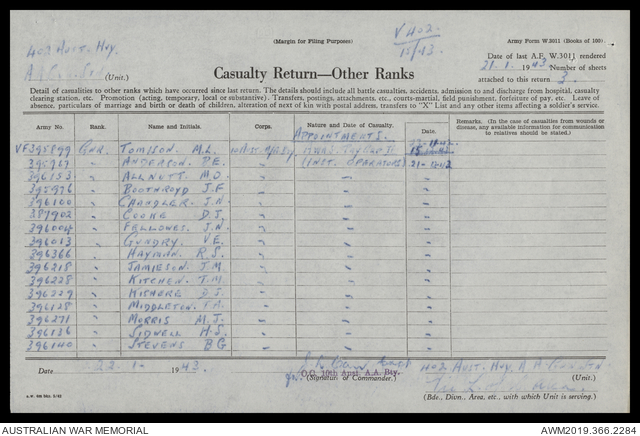 (Margin for Filing Purposes)
V402
15/43
Army Form W.3011 (Books of 100).
402 Aust. Hvy.
A A (Unit.)
Date of last A.F. W.3011 rendered
21. 1. 1943 Number of sheets
attached to this return 3.
Casualty Return—Other Ranks
Detail of casualties to other ranks which have occurred since last return. The details should include all battle casualties, accidents, admission to and discharge from hospital, casualty
clearing station, etc. Promotion (acting, temporary, local or substantive). Transfers, postings, attachments, etc., courts-martial, field punishment, forfeiture of pay, etc. Leave of
absence, particulars of marriage and birth or death of children, alteration of next of kin with postal address, transfer to "X" List and any other items affecting a soldier's service.
Army No. Rank. Name and Initials. Corps. Nature and Date of Casualty. Date. Remarks. (In the case of casualties from wounds or
disease, any available information for communication
to relatives should be stated.)
APPOINTMENTS.
VF395899 GNR. TOMISON. M.L.
395967 " ANDERSON. P.E. (INST. OPERATORS) 21-12-42
396153 " ALLNUTT. M.O. " " "
395976 " BOOTHROYD J.F " " "
396100 " CHANDLER. J.N. " " "
387902 " COOKE D.J. " " "
396004 " FELLOWES. J.N. " " "
396013 " GUNDRY. V.E. " " "
396366 " HAYMAN. R.S. " " "
396218 " JAMIESON. J.M " " "
396228 " KITCHEN. T.M. " " "
396229 " KISHERE D.J. " " "
396128 " MIDDLETON. F.A. " " "
396271 " MORRIS M.J. " " "
396136 " SIDWELL H.S. " " "
396140 " STEVENS B G " " "
Date 22-1- 1943.
O.C. 10th Aust. A.A. Bay.
(Signature of Commander.)
402 Aust. Hvy. A A (Unit.)
(Bde., Divn., Area, etc., with which Unit is serving.)
AUSTRALIAN WAR MEMORIAL
AWM2019.366.2284